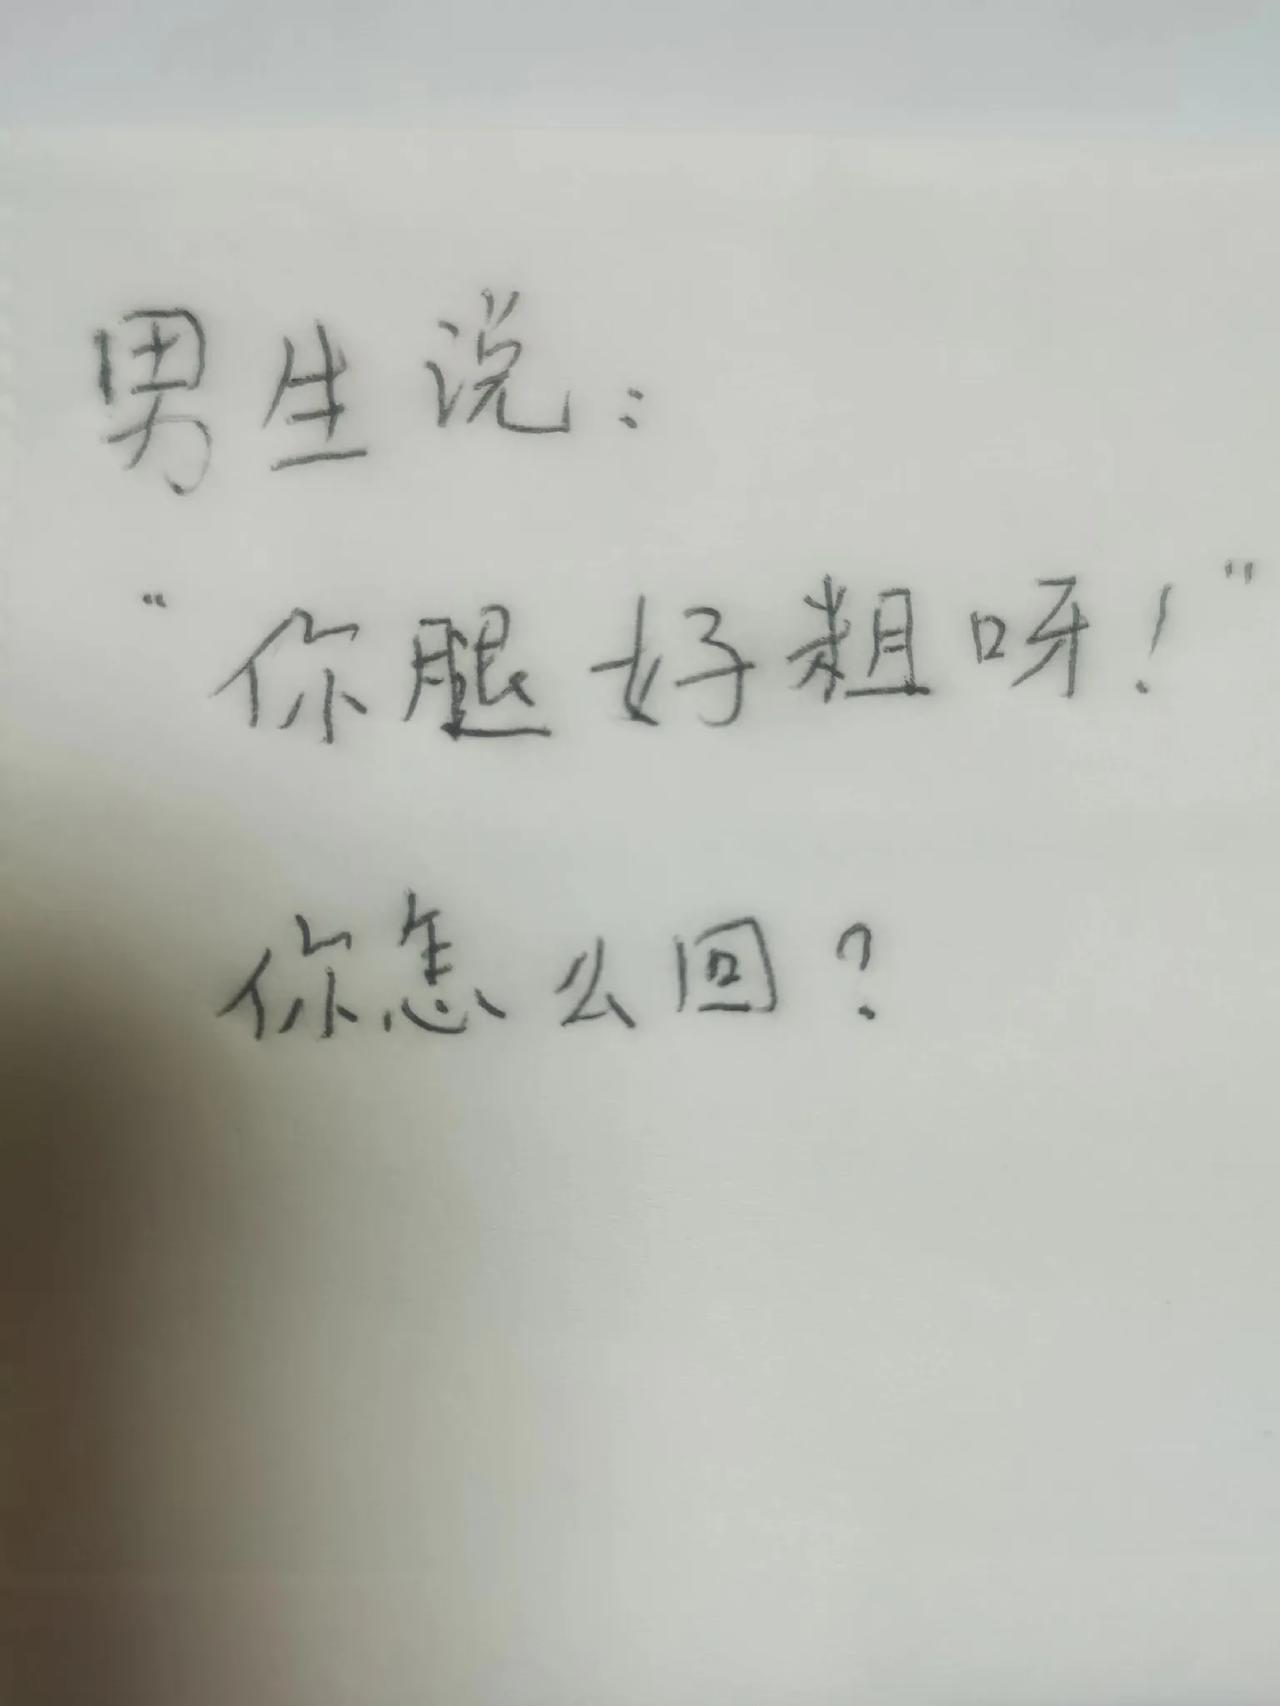 男生说：
“你腿好粗呀！”
你怎么回？